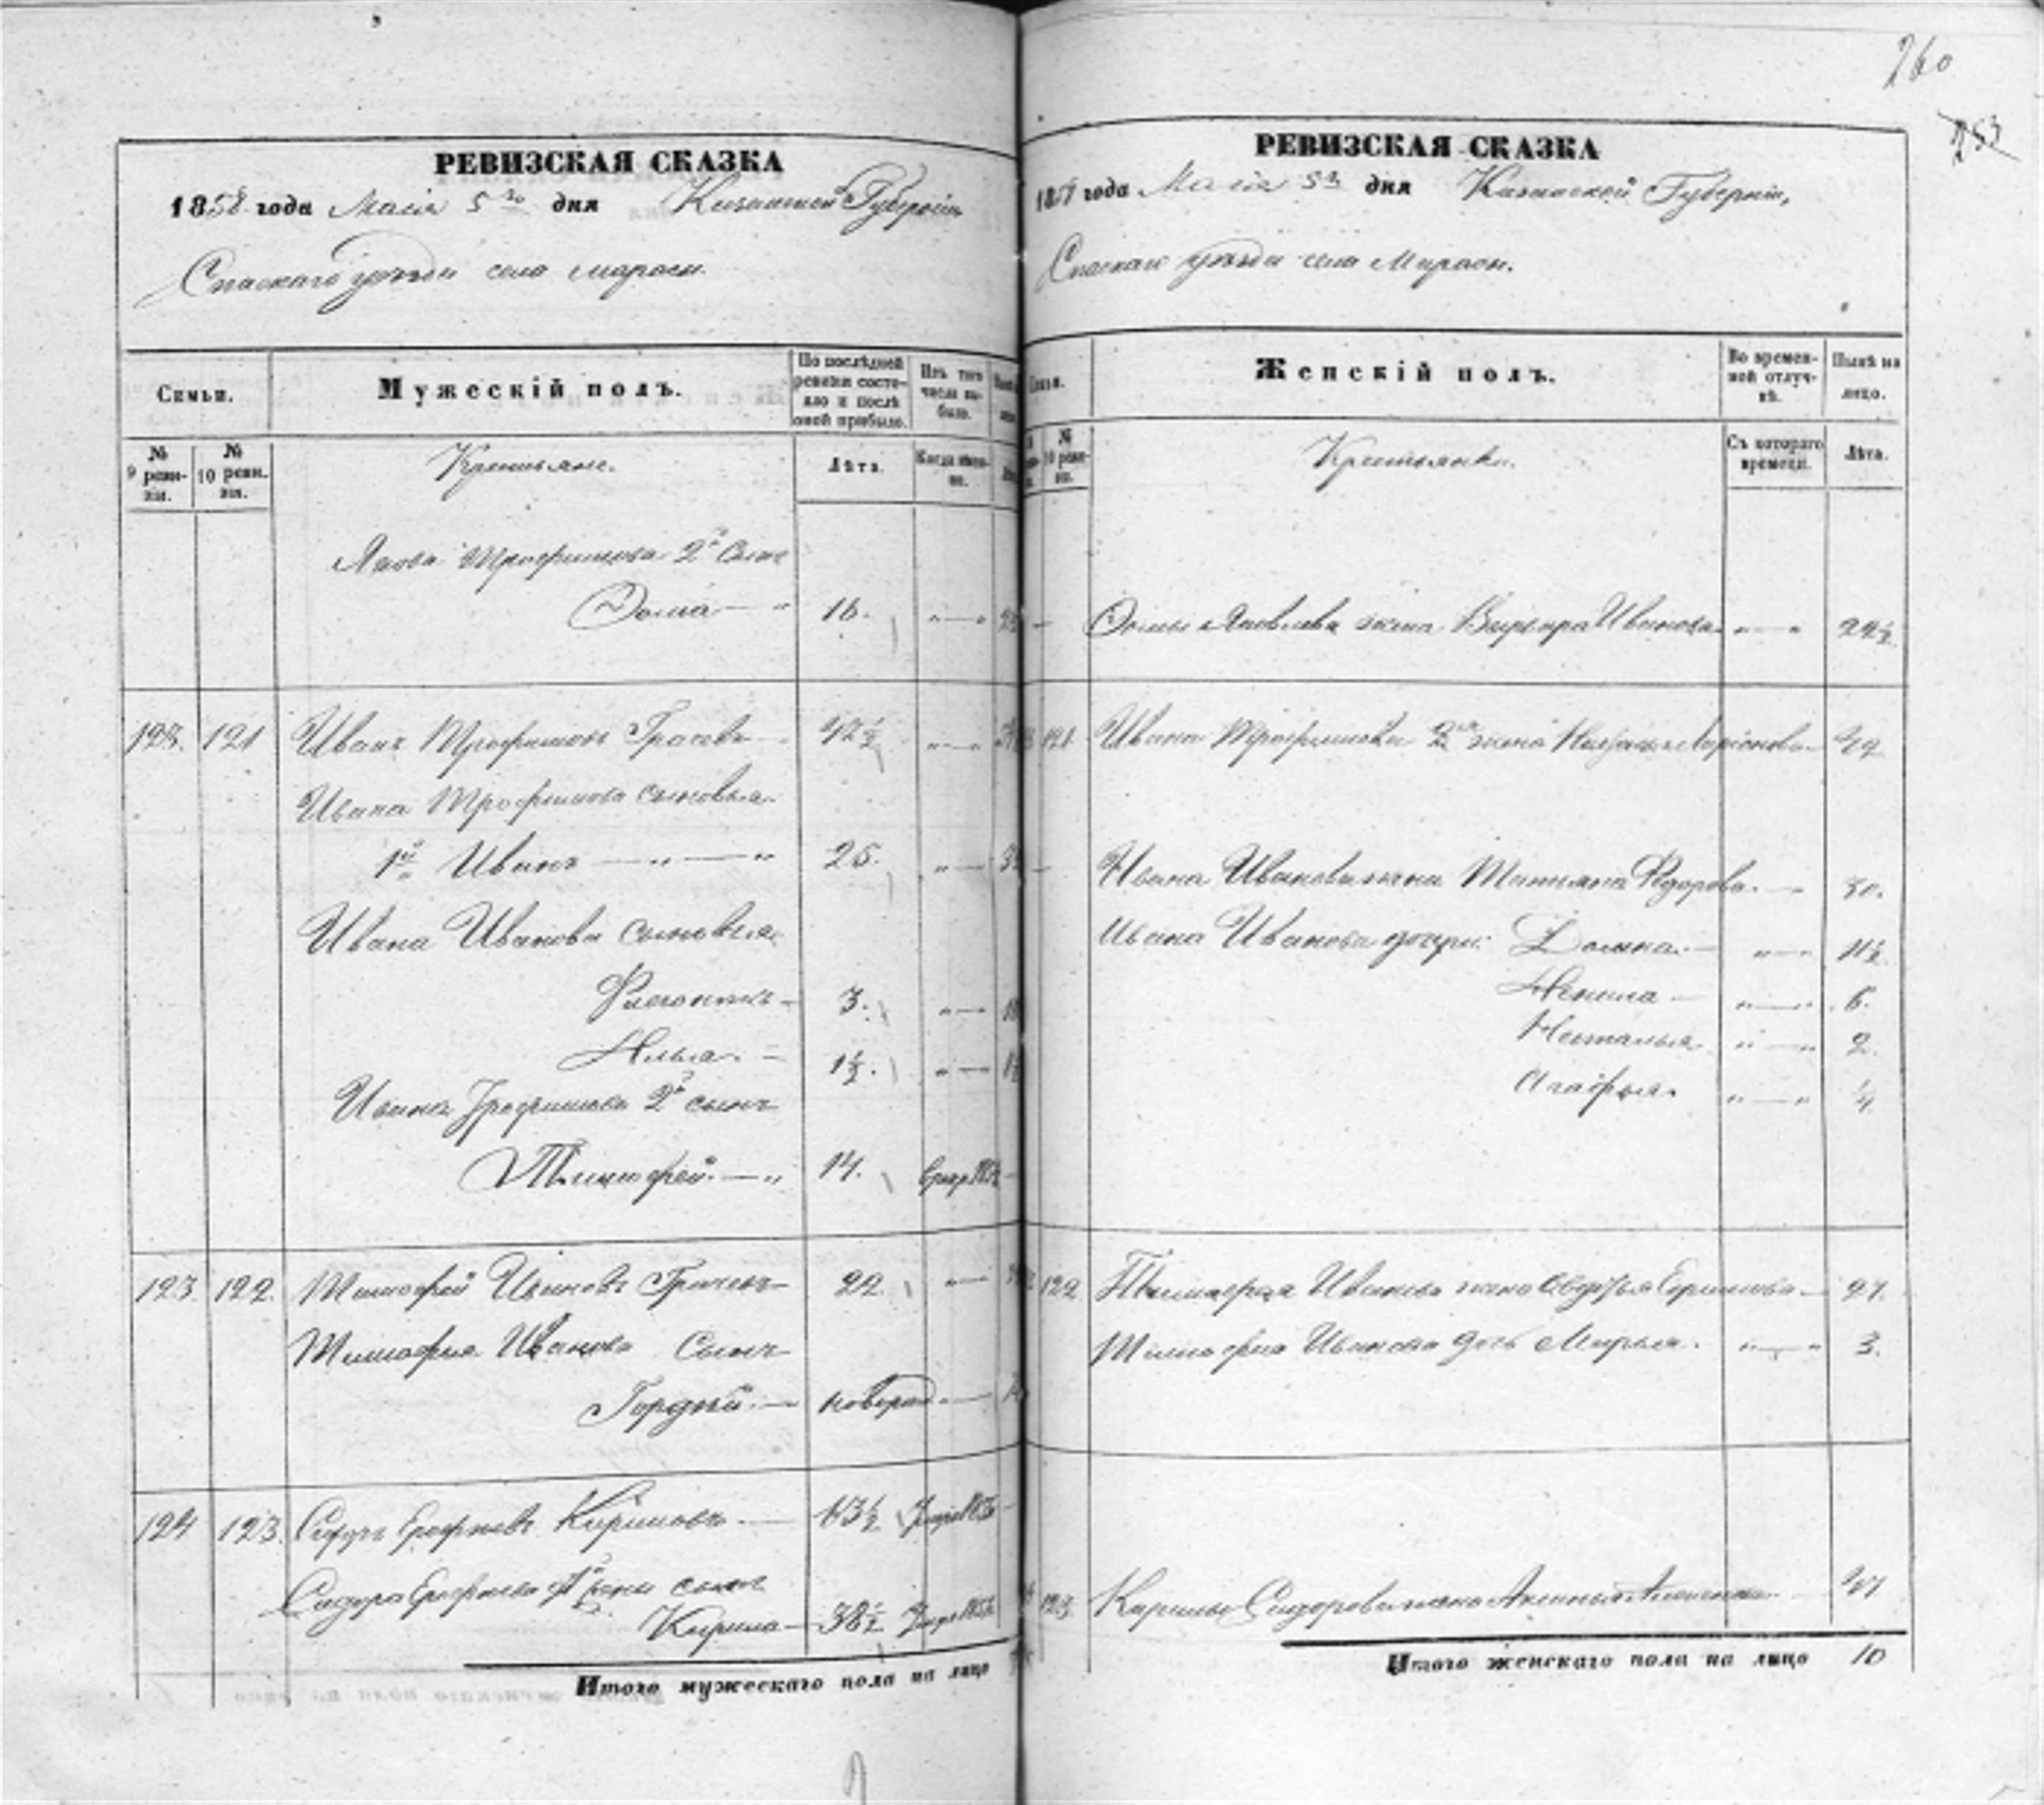 260
253
РЕВИЗСКАЯ СКАЗКА
1858 года Маія 5го дня Казанской Губерніи
Спаскаго уѣзда села Марасы.
Семьи.
Мужескій полъ.
По послѣдней ревизіи состояло и послѣ оной прибыло.
Изъ того числа выбыло.
№ 9 ревизіи.
№ 10 ревизіи.
Крестьяне.
Лѣта.
Когда именно.
Якова Трофимова 2й сынъ
Фома — " 16.
123. 121 Иванъ Трофимовъ 42½
Ивана Трофимова сыновья
1й Иванъ — " — " 25.
Ивана Иванова сыновья
3.
Илья. — 1½.
Ивана Трофимова 2й сынъ
Тимофей. — " 14.
123. 122. Тимофей Ивановъ 22.
Тимофея Иванова Сынъ
Гордей. — новорож.
124 123. Сидоръ Ерофѣевъ Кириловъ. — 43½
Сидора Ерофѣева сынъ
Кирила — 38½
Итого мужескаго пола на лицо
РЕВИЗСКАЯ СКАЗКА
1858 года Маія 5го дня Казанской Губерніи,
Спаскаго уѣзда села Марасы.
Женскій полъ.
Во временной отлучкѣ.
Нынѣ на лицо.
№ 10 ревизіи.
Крестьянки.
Съ котораго времени.
Лѣта.
Фомы Яковлева жена Варвара Иванова " — " 24½
121. Ивана Трофимова 2я жена Ларіонова
Ивана Иванова жена Татьяна Федорова. — 30.
Ивана Иванова дочери: Домна. — " — " 11½
Ненила — " — " 6.
Наталья " — " 2.
Агафья. " — " ¼
122. Тимофея Иванова жена Авдотья — 27.
Тимофея Иванова дочь Марья. " — " 3.
123. Кирилы Сидорова жена Аксинья
Итого женскаго пола на лицо 10